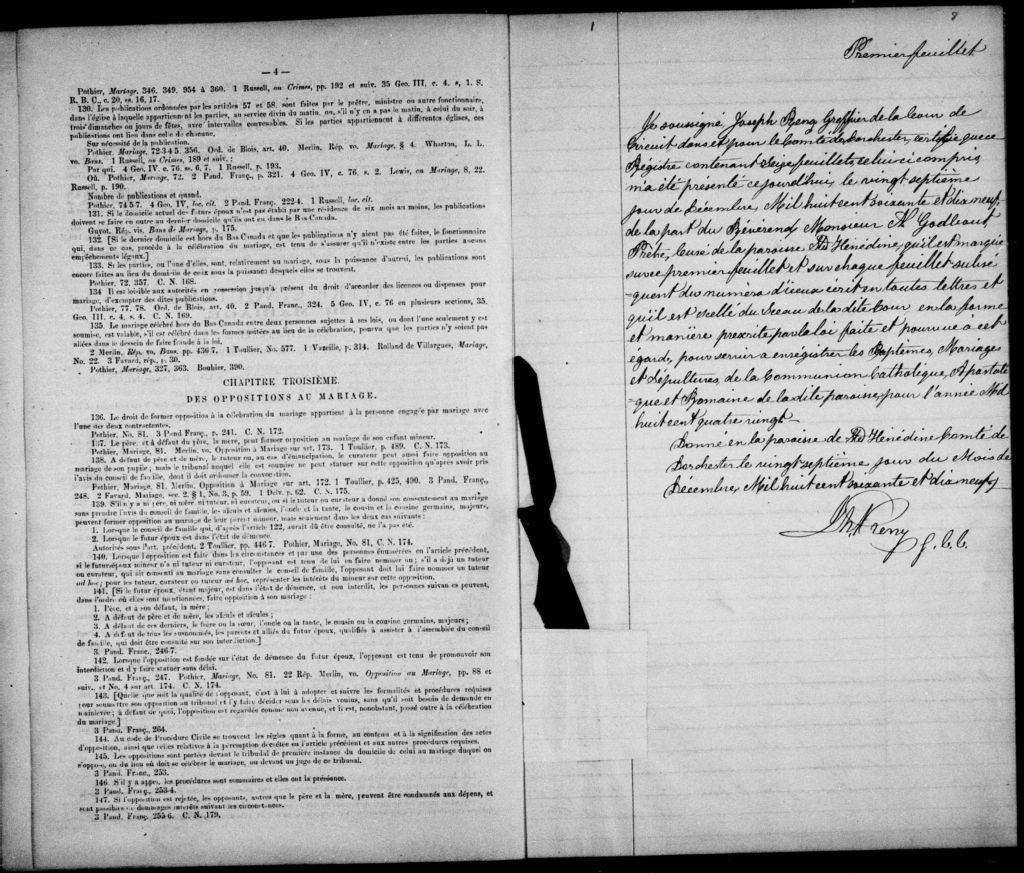 — 4 —
Pothier, Mariage, 346. 349. 954 à 360. 1 Russell, on Crimes, pp. 192 et suiv. 35 Geo. III, c. 4. s, 1. S.
R. B. C., c. 20, ss. 16, 17.
130. Les publications ordonnées par les articles 57 et 58, sont faites par le prêtre, ministre ou autre fonctionnaire,
dans l'église à laquelle appartiennent les parties, au service divin du matin, ou, s'il n'y en a pas le matin, à celui du soir, à
trois dimanches ou jours de fêtes, avec intervalles convenables. Si les parties appartiennent à différentes églises, ces
publications ont lieu dans celle de chacune.
Sur nécessité de la publication.
Pothier, Mariage, 72-3-4-5. 356. Ord. de Blois, art. 40. Merlin, Rép. vo. Mariage, § 4. Wharton, L. L.
vo. Bans. 1 Russell, on Crimes, 189 et suiv. :
Par qui. 4 Geo. IV. c. 76. ss. 6, 7. 1 Russell, p. 193.
Où. Pothier, Mariage, 72. 2 Pand. Franç., p. 321. 4 Geo. IV, c. 76. s. 2. Lewis, on Mariage, 8, 22.
Russell, p. 190.
Nombre de publications et quand.
Pothier, 74-5-7. 4 Geo. IV, loc. cit. 2 Pand. Franç., 222-4. 1 Russell, loc. cit.
131. Si le domicile actuel des futurs époux n'est pas établi par une résidence de six mois au moins, les publications
doivent se faire en outre au dernier domicile qu'ils ont eu dans le Bas Canada.
Guyot, Rép. vis. Bans de Mariage, p. 175.
132. [Si le dernier domicile est hors du Bas Canada et que les publications n'y aient pas été faites, le fonctionnaire
qui, dans ce cas, procède à la célébration du mariage, est tenu de s'assurer qu'il n'existe entre les parties aucuns
empêchements légaux.]
133. Si les parties, ou l'une d'elles, sont, relativement au mariage, sous la puissance d'autrui, les publications sont
encore faites au lieu du domicile de ceux sous la puissance desquels elles se trouvent.
Pothier, 72. 357. C. N. 168.
134 Il est loisible aux autorités en possession jusqu'à présent du droit d'accorder des licences ou dispenses pour
mariage, d'exempter des dites publications.
Pothier, 77. 78. Ord. de Blois, art. 40. 2 Pand. Franç., 324. 5 Geo. IV, c. 76 en plusieurs sections, 35.
Geo. III. c. 4. s. 4. C. N. 169.
135. Le mariage célébré hors du Bas Canada entre deux personnes sujettes à ses lois, ou dont l'une seulement y est
soumise, est valable, s'il est célébré dans les formes usitées au lieu de la célébration, pourvu que les parties n'y soient pas
allées dans le dessein de faire fraude à la loi.
2 Merlin, Rép. vo. Bans. pp. 436-7. 1 Toullier, No. 577. 1 Vazeille, p. 314. Rolland de Villargues, Mariage,
No. 22. 3 Favard, rép., p. 30.
Pothier, Mariage, 327, 363. Bouhier, 390.
CHAPITRE TROISIÈME.
DES OPPOSITIONS AU MARIAGE.
136. Le droit de former opposition à la célébration du mariage appartient à la personne engagée par mariage avec
l'une des deux contractantes.
Pothier, No. 81. 3 Pand Franç., p. 241. C. N. 172.
137. Le père, et à défaut du père, la mère, peut former opposition au mariage de son enfant mineur.
Pothier, Mariage, 81. Merlin. vo. Opposition à Mariage sur art. 173. 1 Toullier, p. 489. C. N. 173.
138. A défaut de père et de mère, le tuteur ou, au cas d'émancipation, le curateur peut aussi faire opposition au
mariage de son pupille ; mais le tribunal auquel elle est soumise ne peut statuer sur cette opposition qu'après avoir pris
l'avis du conseil de famille, dont il doit ordonner la convocation.
Pothier, Mariage, 81. Merlin, Opposition à Mariage sur art. 172. 1 Toullier, p. 425, 490. 3 Pand. Franç.,
248. 2 Favard, Mariage, sec. 2. § 1, No. 3, p. 59. 1 Delv. p. 62. C. N. 175.
139. S'il n'y a ni père, ni mère, ni tuteur, ni curateur, ou si le tuteur ou curateur a donné son consentement au mariage
sans prendre l'avis du conseil de famille, les aïeuls et aïeules, l'oncle et la tante, le cousin et la cousine germains, majeurs,
peuvent former opposition au mariage de leur parent mineur, mais seulement dans les deux cas suivants :
1. Lorsque le conseil de famille qui, d'après l'article 122, aurait dû être consulté, ne l'a pas été.
2. Lorsque le futur époux est dans l'état de démence.
Autorités sous l'art. précédent, 2 Toullier, pp. 446-7. Pothier, Mariage, No. 81, C. N. 174.
140. Lorsque l'opposition est faite dans les circonstances et par une des personnes énumérées en l'article précédent,
si le futur époux mineur n'a ni tuteur ni curateur, l'opposant est tenu de lui en faire nommer un ; s'il a déjà un tuteur
ou curateur, qui ait consenti au mariage sans consulter le conseil de famille, l'opposant doit lui faire nommer un tuteur
ad hoc ; pour les tuteur, curateur ou tuteur ad hoc, représenter les intérêts du mineur sur cette opposition.
141. [Si le futur époux, étant majeur, est dans l'état de démence, et non interdit, les personnes suivantes peuvent,
dans l'ordre où elles sont mentionnées, faire opposition à son mariage :
1. Père, et à son défaut, la mère ;
2. A défaut de père et de mère, les aïeuls et aïeules ;
3. A défaut de ces derniers, le frère ou la sœur, l'oncle ou la tante, le cousin ou la cousine germains, majeurs ;
4. A défaut de tous les susnommés, les parents et alliés du futur époux, qualifiés à assister à l'assemblée du conseil
de famille, qui doit être consulté sur son interdiction.]
3. Pand. Franç., 246-7.
142. Lorsque l'opposition est fondée sur l'état de démence du futur époux, l'opposant est tenu de promouvoir son
interdiction et d'y faire statuer sans délai.
3 Pand. Franç., 247. Pothier, Mariage, No. 81. 22 Rép. Merlin, vo. Opposition au Mariage, pp. 88 et
suiv. et No. 4 sur art. 174. C. N. 174.
143. [Quelle que soit la qualité de l'opposant, c'est à lui à adopter et suivre les formalités et procédures requises
pour soumettre son opposition au tribunal et l'y faire décider sous les délais voulus, sans qu'il soit besoin de demande en
mainlevée ; à défaut de quoi, l'opposition est regardée comme non avenue, et il est, nonobstant, passé outre à la célébration
du mariage.]
3 Pand. Franç., 264.
144. Au code de Procédure Civile se trouvent les règles quant à la forme, au contenu et à la signification des actes
d'opposition, ainsi que celles relatives à la péremption décrétée en l'article précédent et aux autres procédures requises.
145. Les oppositions sont portées devant le tribunal de première instance du domicile de celui au mariage duquel on
s'oppose, ou du lieu où doit se célébrer le mariage, ou devant un juge de ce tribunal.
3 Pand. Franc., 253.
146. S'il y a appel, les procédures sont sommaires et elles ont la préséance.
3 Pand. Franç., 253-4.
147. Si l'opposition est rejetée, les opposants, autres que le père et la mère, peuvent être condamnés aux dépens, et
sont passibles de dommages intérêts suivant les circonstances.
3 Pand. Franç. 255-6. C. N. 179.
1
8
Premier feuillet
Je soussigné, Joseph Greffier de la Cour de
Circuit dans et pour le Comté de Dorchester, certifie que ce
Régistre contenant Seize feuillets, celui ci compris
m'a été présenté ce jourd'hui, le vingt septième
jour de Décembre, Mil huit cent soixante et dix neuf,
de la part du Révérend Monsieur Godbout,
Prêtre, Curé de la paroisse Ste Hénédine, qu'il est marqué
sur ce premier feuillet et sur chaque feuillet subsé
-quent du numéro d'iceux écrit en toutes lettres et
qu'il est scellé du Sceau de la dite Cour en la forme
et manière prescrite par la loi faite et pourvue a cet
egard, pour servir a enrégistrer les Baptèmes, Mariages
et Sépultures, de la Communion Catholique, Apostoli
-que et Romaine de la dite paroisse, pour l'année Mil
huit cent quatre vingt -
Donné en la paroisse de Ste Hénédine Comté de
Dorchester le vingt septième jour du Mois de
Décembre, Mil huit cent soixante et dix neuf,
G. C. C.